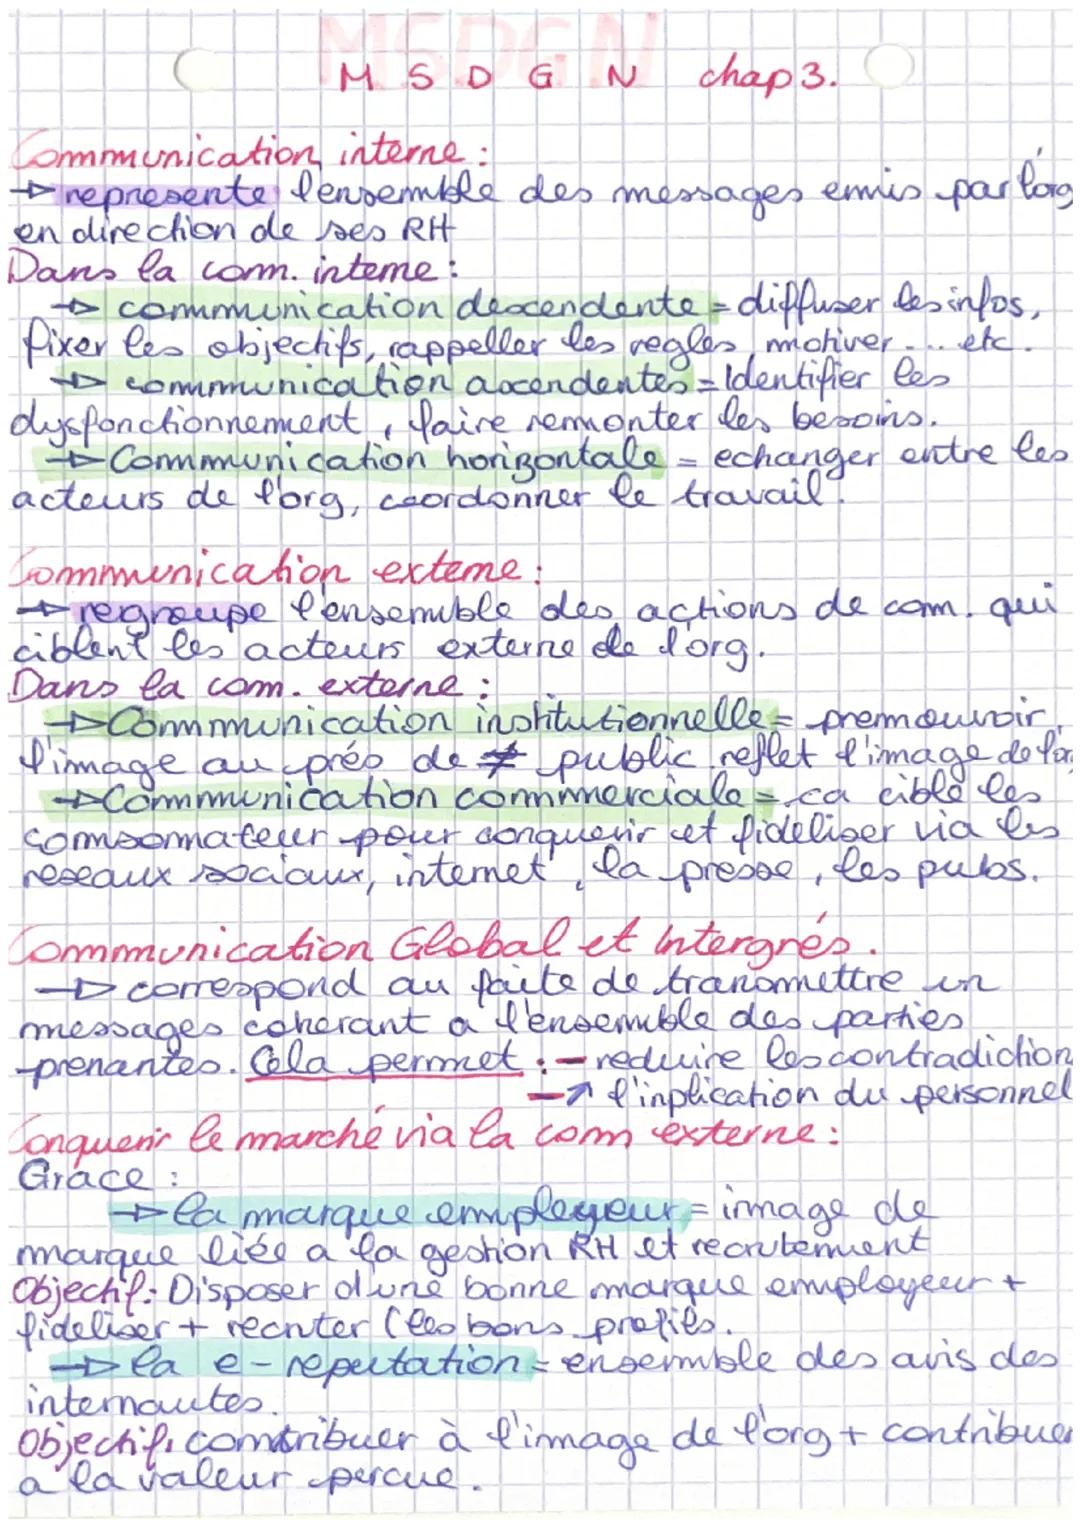 MSDGN
M S D G N chap 3.
Communication interne :
→ represente l'ensemble des messages emis par l'org
en direction de ses RH
Dans la comm. interne :
→ communication descendente = diffuser les infos,
fixer les objectifs, rappeller les regles, motiver... etc.
→ communication ascendentes = Identifier les
dysfonctionnement, faire remonter les besoins.
→ Communication horizontale = echanger entre les
acteurs de l'org, coordonner le travail.
Communication externe :
→ regroupe l'ensemble des actions de com. qui
ciblent les acteurs externe de l'org.
Dans la com. externe :
→ Communication institutionnelle = premouvoir
l'image au près de ≠ public reflet l'image de l'org
→ Communication commerciale = ca cible les
comsomateur pour conquerir et fidéliser via les
reseaux sociaux, internet, la presse, les pubs.
Communication Global et Intergrés.
→ correspond au faite de transmettre un
messages coherant a l'ensemble des parties
prenantes. Cela permet : - reduire les contradiction
- ↗ l'inplication du personnel
Conquerir le marché via la com externe :
Grace :
→ la marque employeur = image de
marque liée a la gestion RH et recrutement
Objectif: Disposer d'une bonne marque employeur +
fideliser + recruter (les bons profils.
→ la e-reputation = ensemble des avis des
internautes.
Objectif: comtribuer à l'image de l'org + contribuer
a la valeur percue.